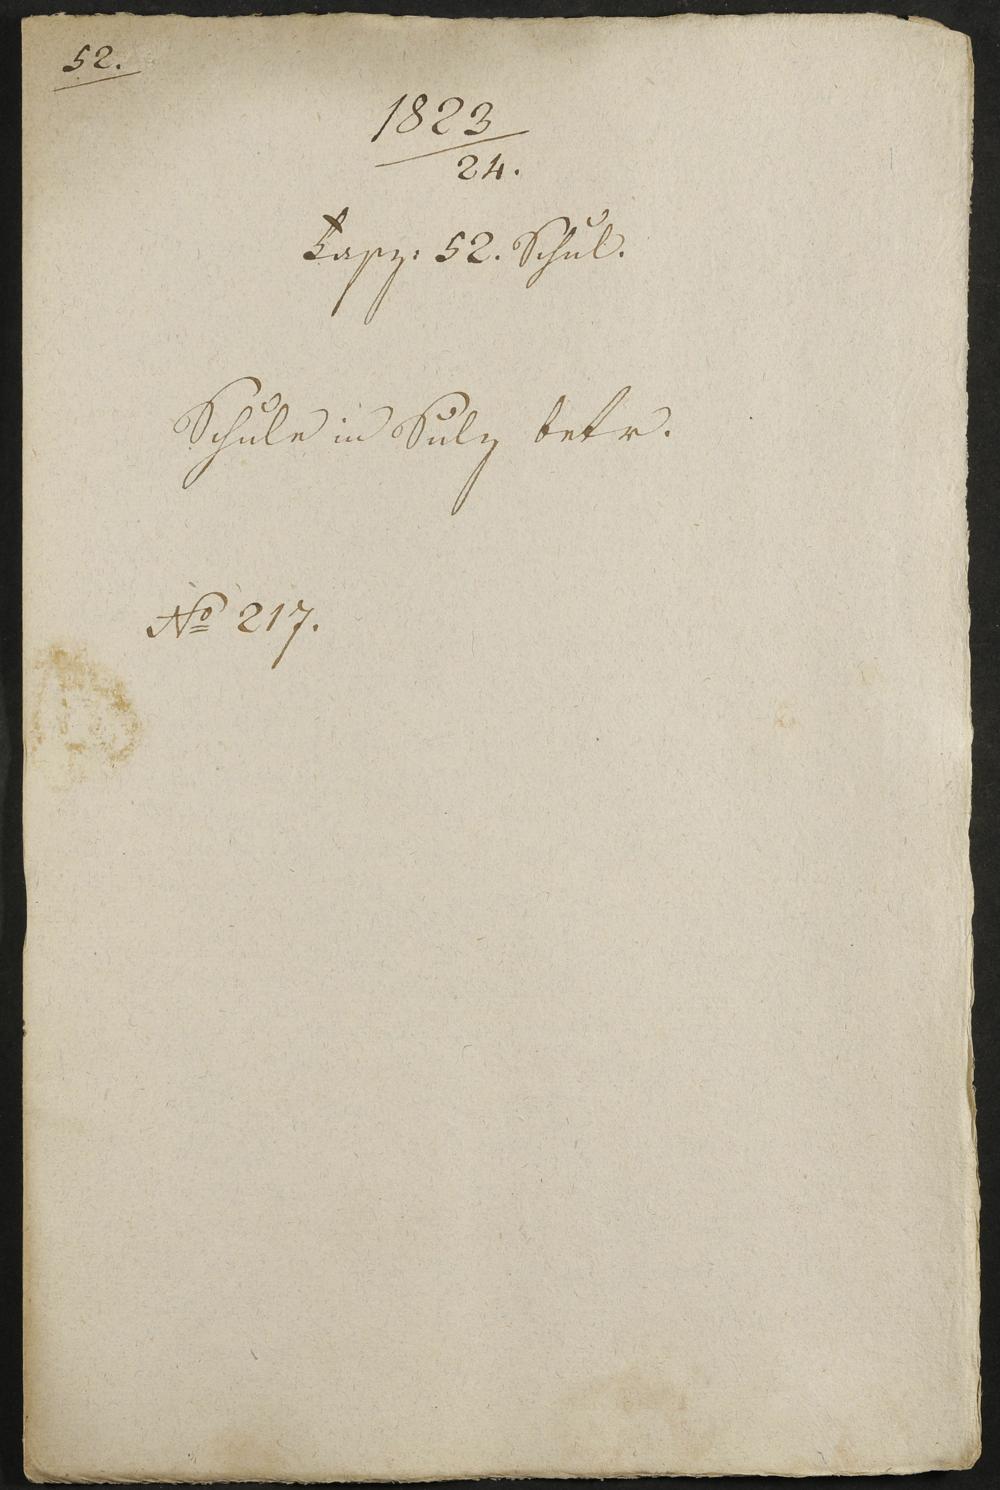 52.
1823
24.
Fasz: 52. Schul.
Schule in Sulz betr.
No 217.